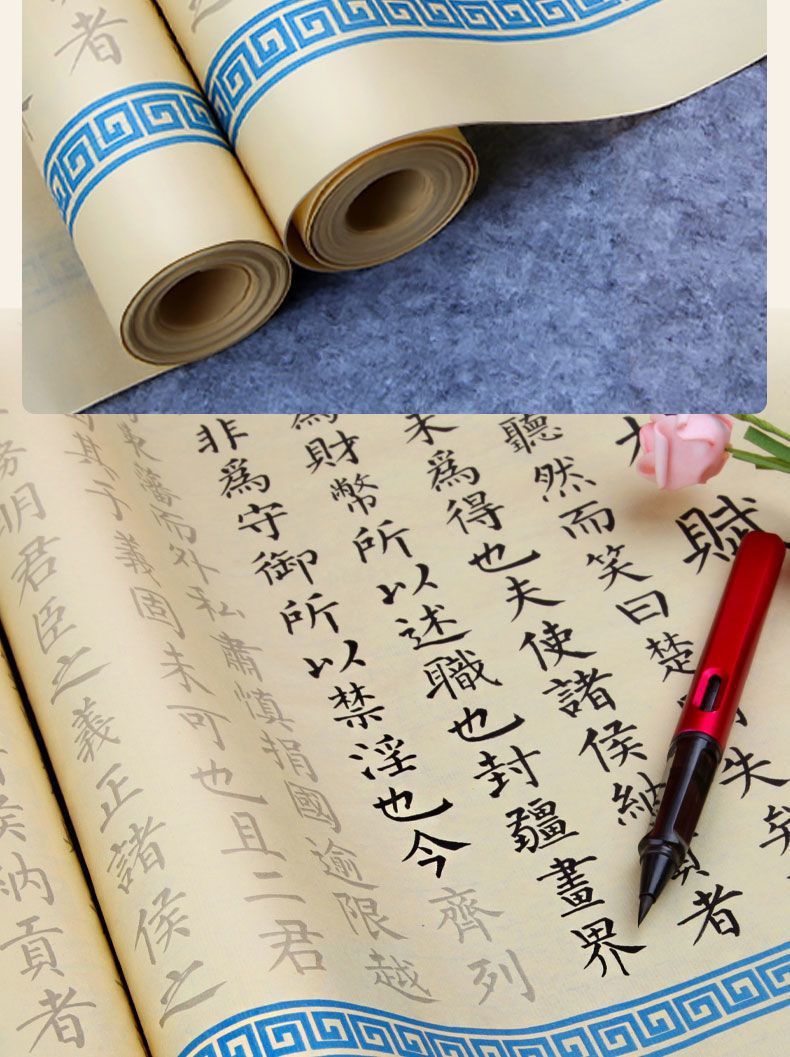 者
賦
聽然而笑曰楚失
未為得也夫使諸侯納貢者
為財幣所以述職也封疆畫界
非為守御所以禁淫也今齊列
東藩而外私肅慎捐國逾限越
其于義固未可也且二君
務明君臣之義正諸侯之
侯納貢者